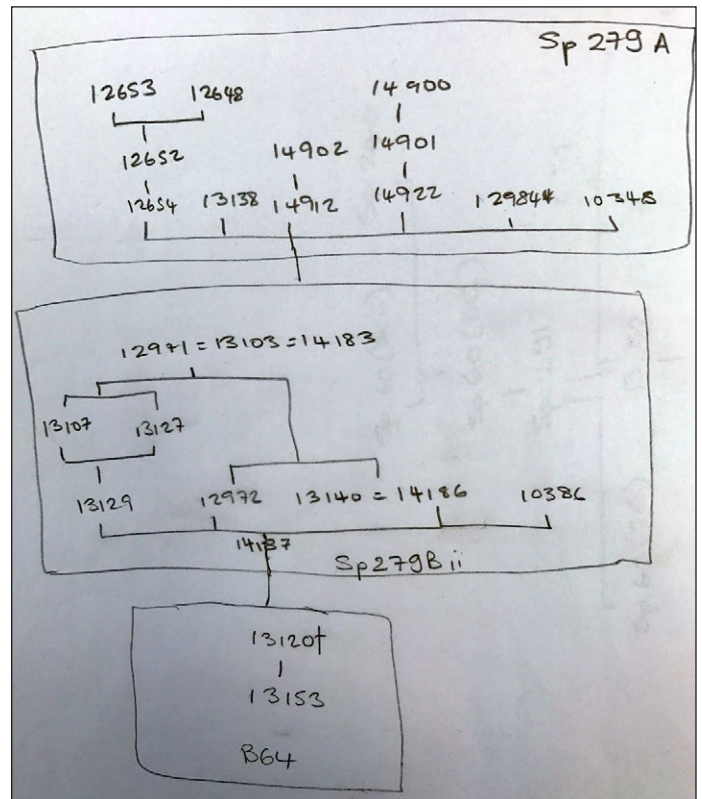 Sp 279 A
12653 12648 14900
12652 14902 14901
12654 13138 14912 14922 12984* 10348
12971 = 13103 = 14183
13107 13127
13129 12972 13140 = 14186 10386
14187
Sp279Bii
13120†
13153
B64